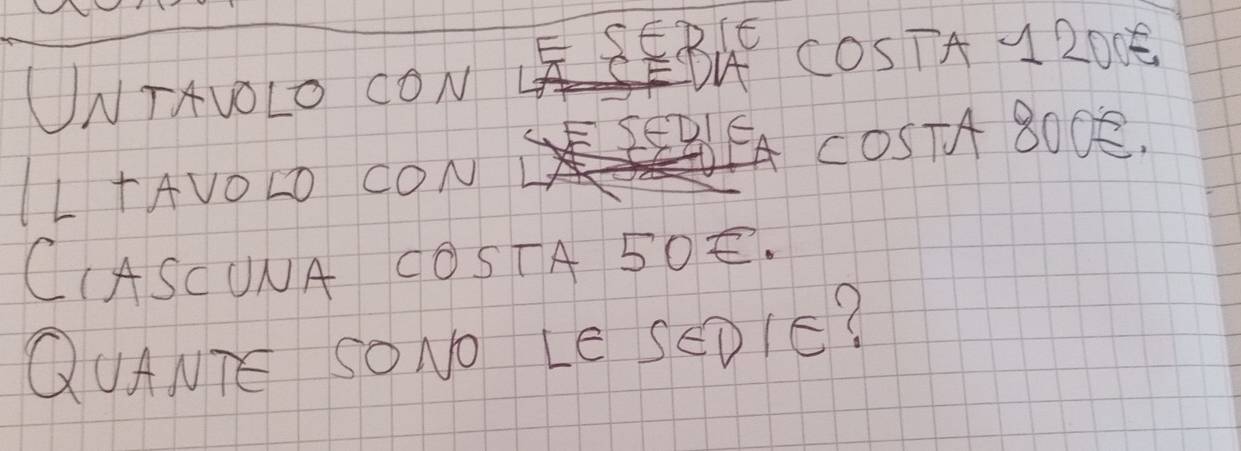 UN TAVOLO CON LE SEDIE COSTA 1200€
IL TAVOLO CON LE SEDIE COSTA 800€.
CIASCUNA COSTA 50€.
QUANTE SONO LE SEDIE?